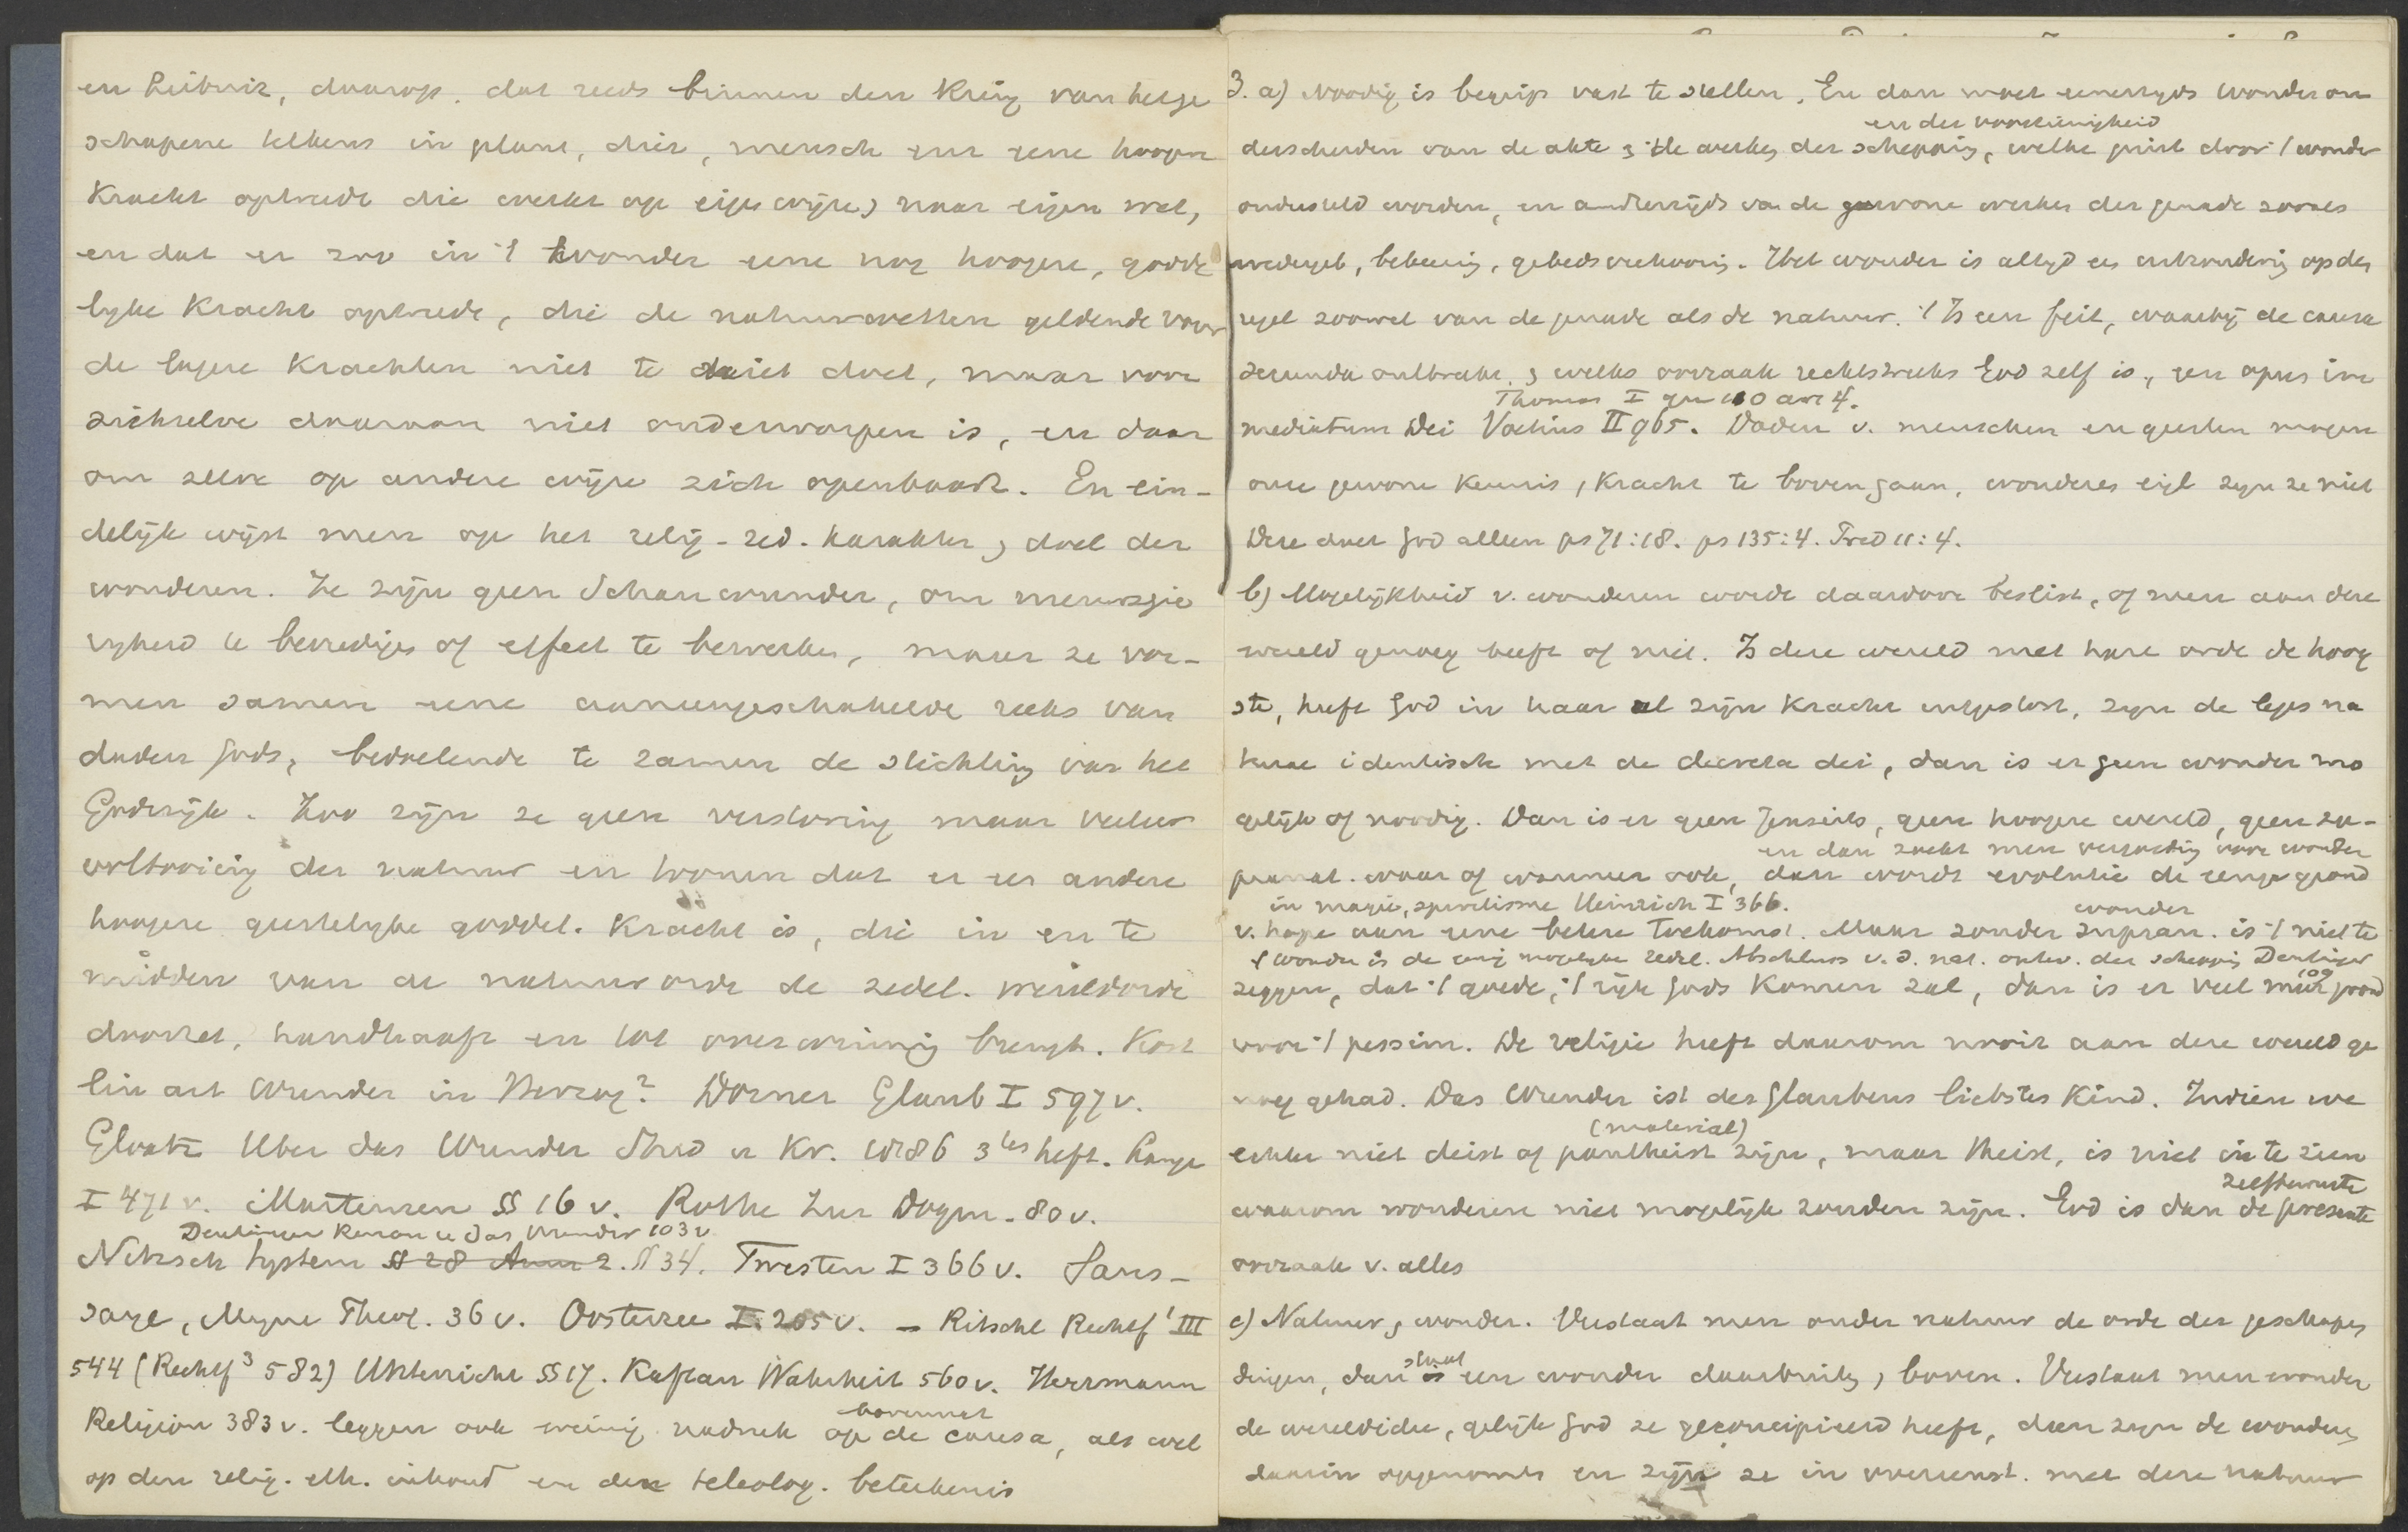 en Leibniz, daarop, dat reeds binnen den Kring van het ge
schapene telkens in plant, dier, mensch eene hoogere
Kracht optreedt die werkt op eigen wijze, naar eigen wet,
en dat er zoo in 't wonder eene nog hoogere, godde
lyke Kracht optrede, die de natuurwetten geldende voor
de lagere Krachten niet te niet doet, maar voor
zichzelve daaraan niet onderworpen is, en daar
om zelve op andere wijze zich openbaart. En ein-
delijk wijst men op het relig-zed. karakter, doel der
wonderen. Ze zijn geen Schauwunder, om nieuwsgie
righeid te bevredigen of effect te bewerken, maar ze vor-
men samen eene aaneengeschakelde reeks van
daden Gods, bedoelende te zamen de stichting van het
Godsrijk. Zoo zijn ze geen verstoring maar veeleer
voltooiing der natuur en toonen dat er een andere
hoogere geestelyke goddel. Kracht is, die in en te
midden van de natuurorde de zedel. wereldorde
doorzet, handhaaft en tot overwinning brengt. Köst
lin art Wunder in Herzog². Dorner Glaub I 597 v.
Gloatz Uber das Wunder Stud u Kr. 1886 3tes heft. Lange
I 471 v. Martensen §§ 16 v. Rothe Zur Dogm. 80 v.
Deutinger Renan u das Wunder 103 v
Nitzsch System §§ 28 Anm 2. § 34. Twesten I 366 v. Saus-
saye, Myne Theol. 36 v. Oosterzee I. 205 v. - Ritschl Rechtf¹ III
544 (Rechtf³ 582) Unterricht §§ 17. Kaftan Wahrheit 560 v. Herrmann
bovennat
Religion 383 v. leggen ook weinig nadruk op de causa, als wel
op den relig. eth. inhoud en den teleolog. beteekenis
3. a) Noodig is begrip vast te stellen. En dan moet eenerzyds wonder on
en der voorzienigheid
derscheiden van de akte, de werken der schepping, welke juist door 't wonder
ondersteld worden, en anderzijds van de gewone werken der genade zooals
wedergeb, bekeering, gebedsverhooring. Het wonder is altyd een uitzondering op den
regel zoowel van de genade als de natuur. 't Is een feit, waarbij de causa
secunda ontbreekt, welks oorzaak rechtstreeks God zelf is, een opus im
Thomas I qu 110 art 4.
mediatum Dei Voetius II 965. Daden v. menschen en geesten mogen
onze gewone Kennis, Kracht te boven gaan, wonderen eigl zyn ze niet
Deze doet God alleen ps 71:18. ps 135:4. Fred 11:4.
b) Mogelijkheid v. wonderen wordt daardoor beslist, of men aan deze
wereld genoeg heeft of niet. Is deze wereld met hare orde de hoog
ste, heeft God in haar al zijn Kracht uitgestort, zyn de leges na
turae identisch met de decreta dei, dan is er geen wonder mo
gelijk of noodig. Dan is er geen Jenseits, geen hoogere wereld, geen su-
en dan zoekt men vergoeding voor wonder
pranat. waar of wanneer ook, dan wordt evolutie de eenige grond
in magie, spiritisme Heinrich I 366.
wonder
v. hope aan eene betere toekomst. Maar zonder supran. is 't niet te
't wonder is de eenig mogelyke zedel. Abschluss v. d. nat. ontw. der schepping Deutinger
zeggen, dat 't goede, 't rijk Gods Komen zal, dan is er veel meer grond
voor 't pessim. De religie heeft daarom nooit aan deze wereld ge
noeg gehad. Das Wunder ist des Glaubens liebstes Kind. Indien we
(material)
echter niet deist of pantheist zijn, maar theist, is niet in te zien
zelfbewuste
waarom wonderen niet mogelijk zouden zijn. God is dan de presente
oorzaak v. alles
c) Natuur, wonder. Verstaat men onder natuur de orde der geschapen
staat
dingen, dan is een wonder daarbuiten, boven. Verstaat men onder
de wereldidee, gelijk God ze geconcipieerd heeft, dan zyn de wonderen
daarin opgenomen en zijn ze in overeenst. met deze natuur